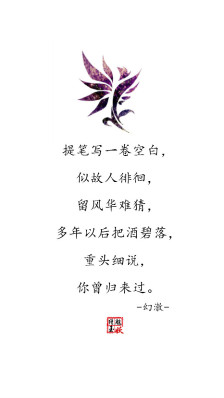 提笔写一卷空白，
似故人徘徊，
留风华难猜，
多年以后把酒碧落，
重头细说，
你曾归来过。
-幻澈-